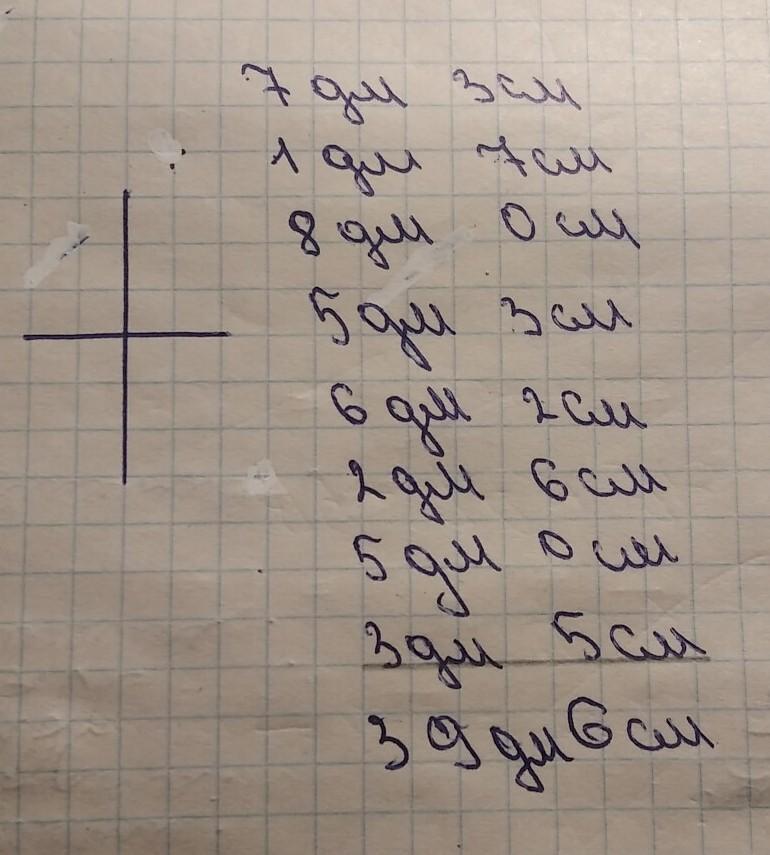 7 дм 3 см
1 дм 7 см
8 дм 0 см
5 дм 3 см
6 дм 2 см
2 дм 6 см
5 дм 0 см
3 дм 5 см
39 дм 6 см